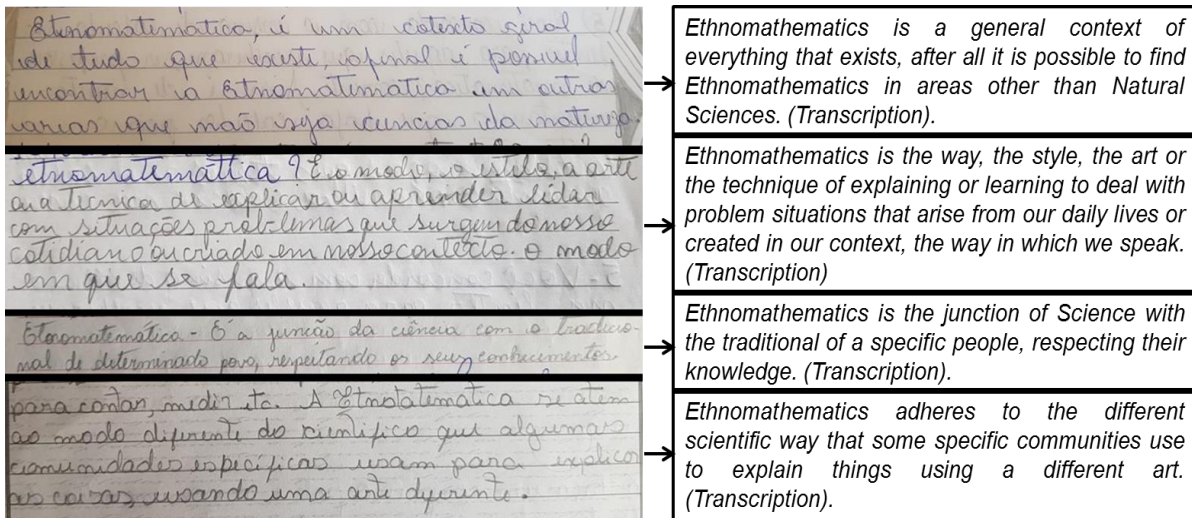 Etinomatimática, é um cotexto giral
de tudo que existe, afinal é possivel
encontrar a Etnomatimatica em outras
varias que não seja ciencias da natureza.
etnomatemáttica ? É o modo, o estilo, a arte
ou a tecnica de explicar ou aprender lidar
com situações problemas que surgem do nosso
cotidiano ou criado em nosso contecto. o modo
em que se fala.
Etnomatemática - É a junção da ciência com o tradicio-
nal de determinado povo, respeitando os seus conhecimentos.
para contar, medir etc. A Etnotatematica se atem
ao modo diferente do cientifico que algumas
comunidades especificas usam para explicar
as coisas, usando uma arte diferente.
Ethnomathematics is a general context of
everything that exists, after all it is possible to find
Ethnomathematics in areas other than Natural
Sciences. (Transcription).
Ethnomathematics is the way, the style, the art or
the technique of explaining or learning to deal with
problem situations that arise from our daily lives or
created in our context, the way in which we speak.
(Transcription)
Ethnomathematics is the junction of Science with
the traditional of a specific people, respecting their
knowledge. (Transcription).
Ethnomathematics adheres to the different
scientific way that some specific communities use
to explain things using a different art.
(Transcription).